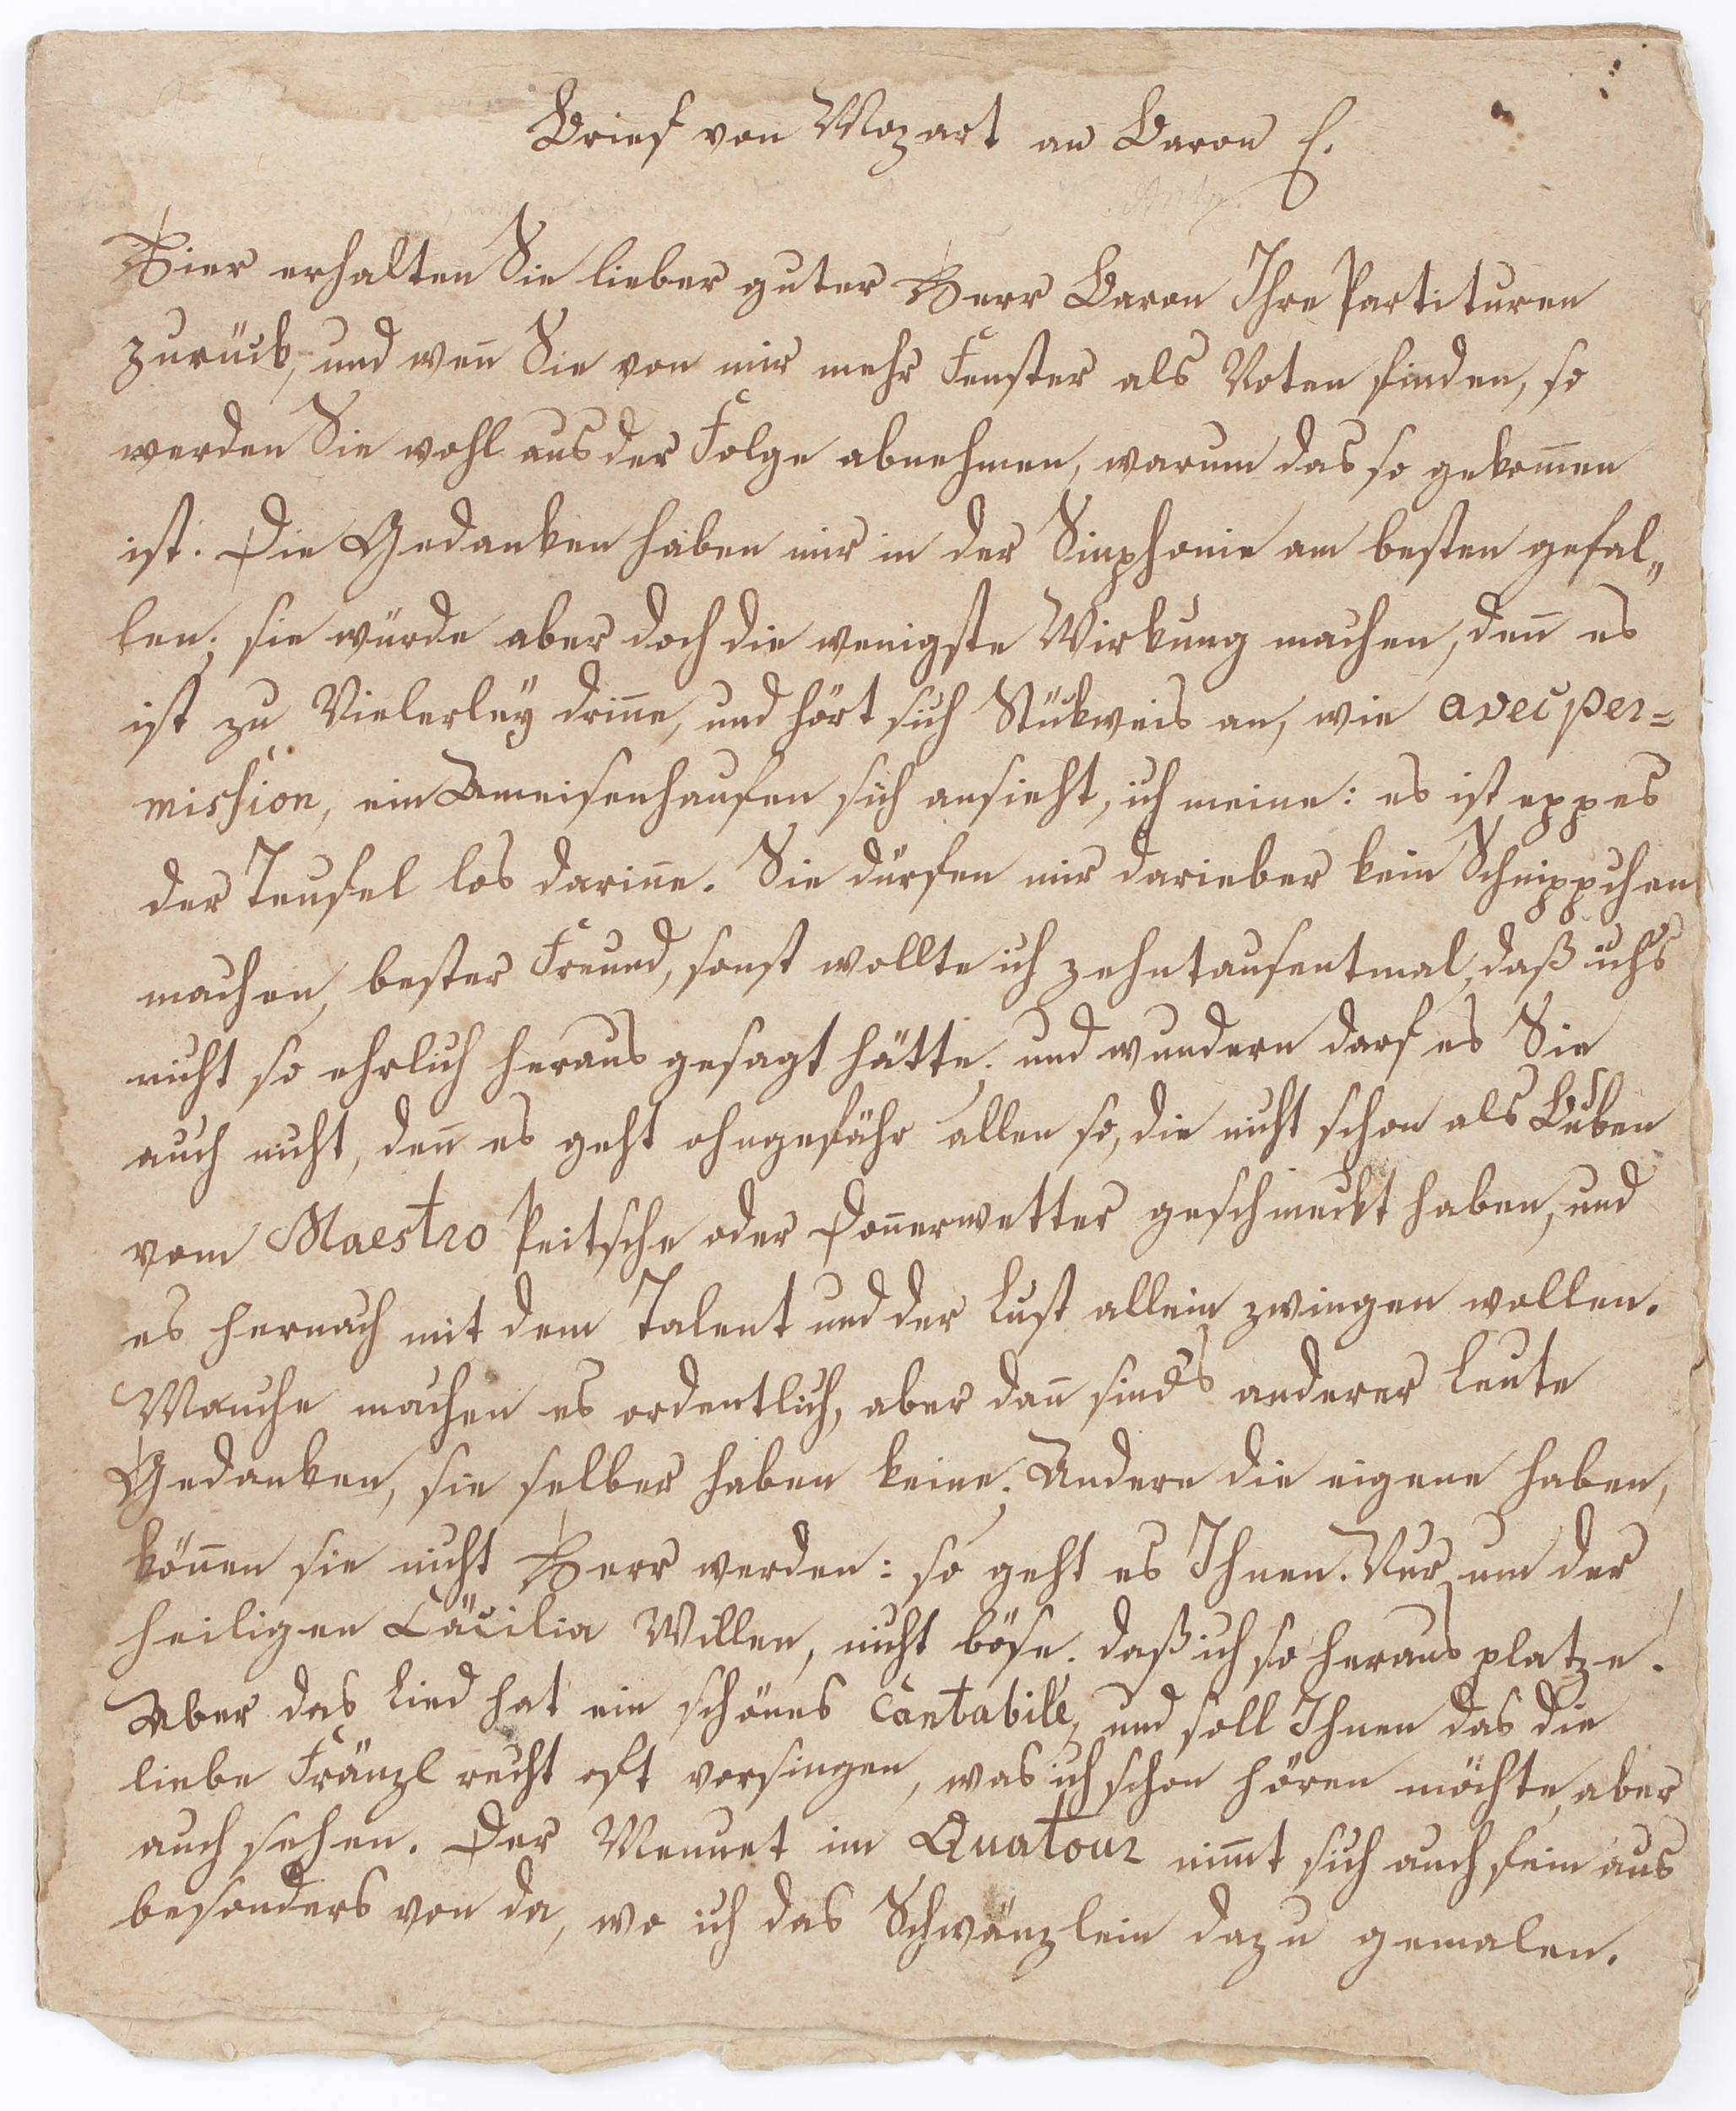 Brief von Mozart an Baron E.
Hier erhalten Sie lieber guter Herr Baron Ihre Partituren
zurück, und weñ Sie von mir mehr Fenster als Noten finden, so
werden Sie wohl aus der Folge abnehmen, warum das so gekom̃en
ist. Die Gedanken haben mir in der Sinphonie am besten gefal„
len; sie würde aber doch die wenigste Wirkung machen, deñ es
ist zu Vielerley driñe, und hört sich Stükweis an, wie avec per=
mission, ein Ameisenhaufen sich ansieht, ich meine: es ist eppes
der Teufel los dariñe. Sie dürfen mir darieber kein Schnippchen
machen, bester Freund, sonst wollte ich zehntausentmal, daß ich's
nicht so ehrlich heraus gesagt hätte; und wundern darf es Sie
auch nicht, deñ es geht ohngefähr allen so, die nicht schon als Buben
vom Maestro Peitsche oder Doñerwetter geschmeckt haben, und
es hernach mit dem Talent und der Lust allein zwingen wollen.
Manche machen es ordentlich, aber dañ sind's anderer Leute
Gedanken, sie selber haben keine; Andere die eigene haben,
köñen sie nicht Herr werden: so geht es Ihnen. Nur um der
heiligen Cäcilia Willen, nicht böse. daß ich so heraus platze!
Aber das Lied hat ein schönes Cantabile, und soll Ihnen das die
liebe Fränzl recht oft vorsingen, was ich schon hören möchte, aber
auch sehen. Der Menuet im Quatour nim̃t sich auch fein aus
besonders von da, wo ich das Schwänzlein dazu gemalen.